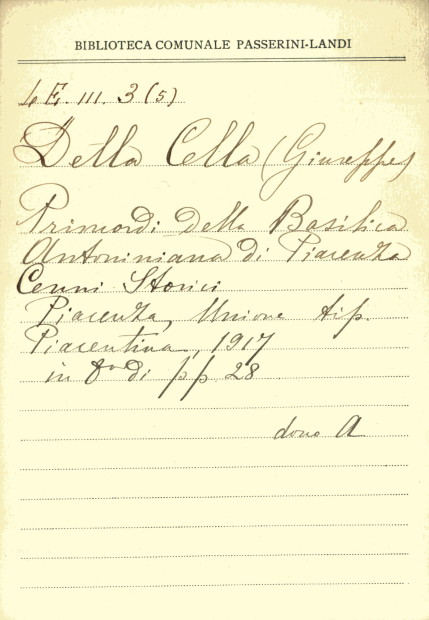 BIBLIOTECA COMUNALE PASSERINI-LANDI
4 E. III. 3 (5)
Della Cella (Giuseppe)
Primordi della Basilica
Antoniniana di Piacenza
Cenni Storici
Piacenza, Unione tip.
Piacentina, 1917
in 8vo di pp 28
dono A